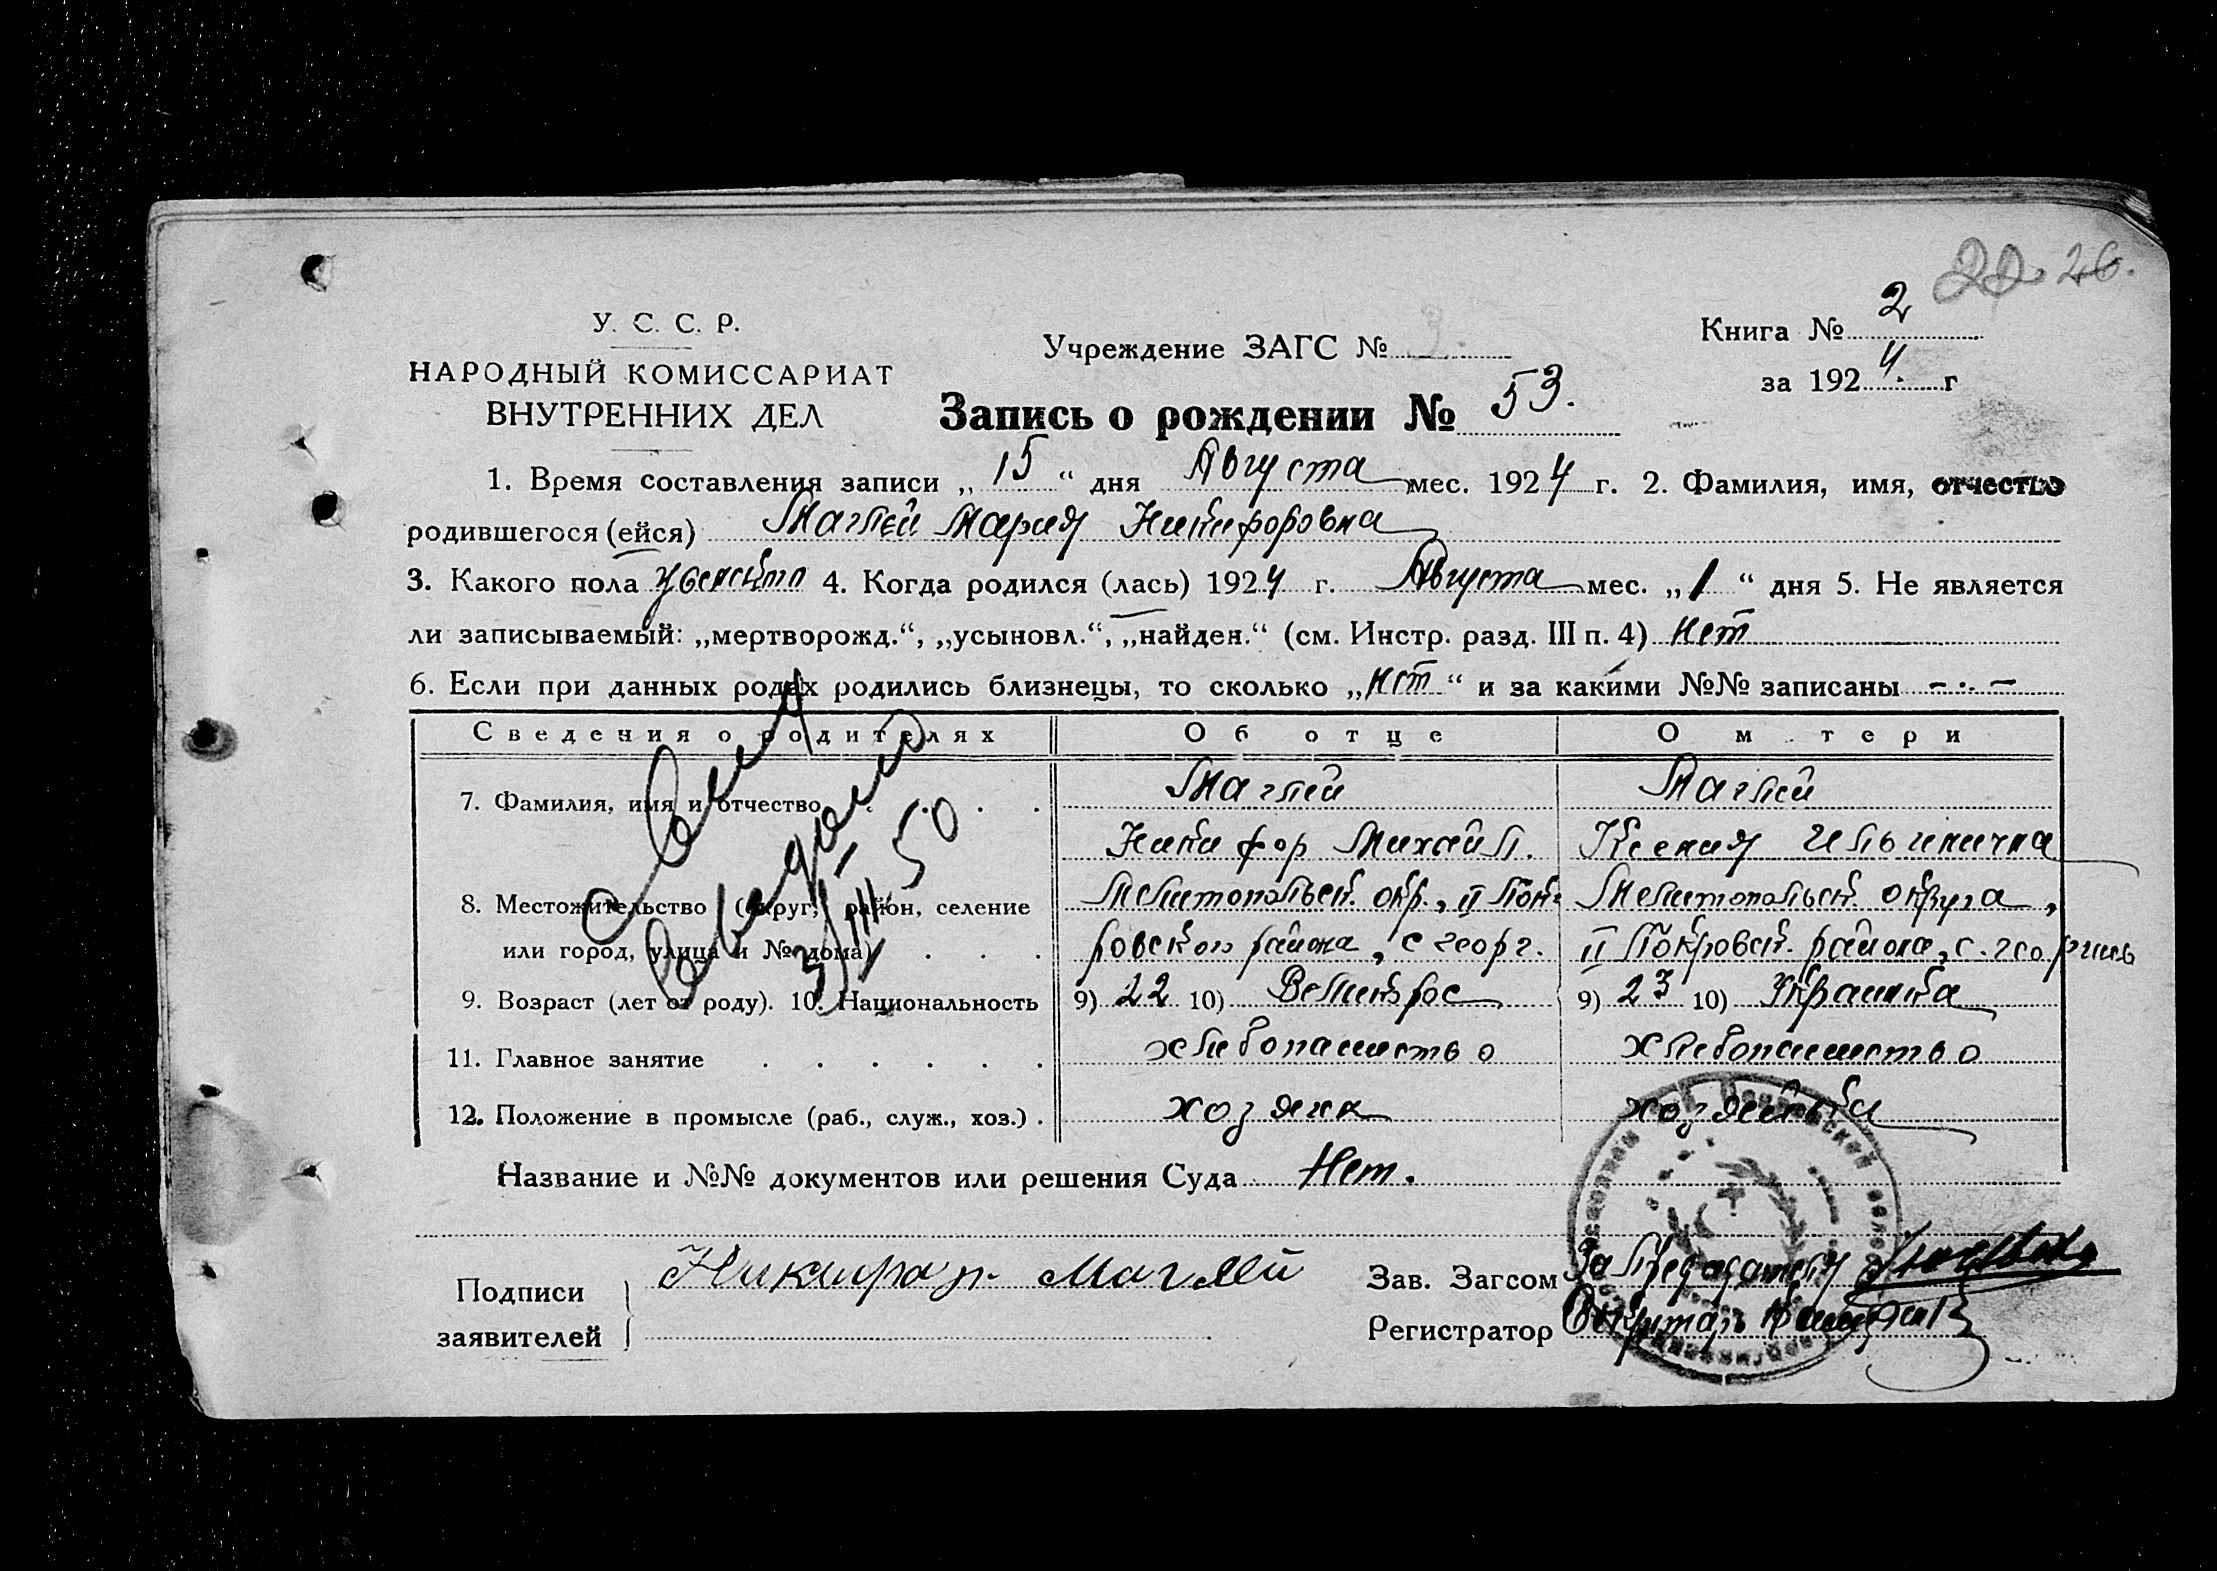 22. 26.
У. С. С. Р.
НАРОДНЫЙ КОМИССАРИАТ
ВНУТРЕННИХ ДЕЛ
Учреждение ЗАГС № 3.
Книга № 2
за 1924. г
Запись о рождении № 53.
1. Время составления записи „ 15 “ дня Августа мес. 1924 г. 2. Фамилия, имя, отчество
родившегося (ейся) Маглей Мария Никифоровна
3. Какого пола женского 4. Когда родился (лась) 1924 г. Августа мес. „ 1 “ дня 5. Не является
ли записываемый: „мертворожд.“, „усыновл.“, „найден.“ (см. Инстр. разд. III п. 4) нет
6. Если при данных родах родились близнецы, то сколько „нет“ и за какими №№ записаны - . -
Сведения о родителях Об отце О м тери
7. Фамилия, имя и отчество Маглей Маглей
Никифор Михайл. Ксения Ильинична
8. Местожительство (округ, район, селение Мелитопольск. окр., II Пок- Мелитопольск. округа,
или город, улица и № дома) ровского района, с георг. II Покровск. района, с. георгиев
9. Возраст (лет от роду). 10. Национальность 9) 22 10) Великрос 9) 23 10) Украинка
11. Главное занятие хлебопашество хлебопашество
12. Положение в промысле (раб., служ., хоз.) хозяин хозяйка
50
Название и №№ документов или решения Суда Нет.
Подписи
заявителей
Никифор Маглей
Зав. Загсом За Председателя
Регистратор Секретарь